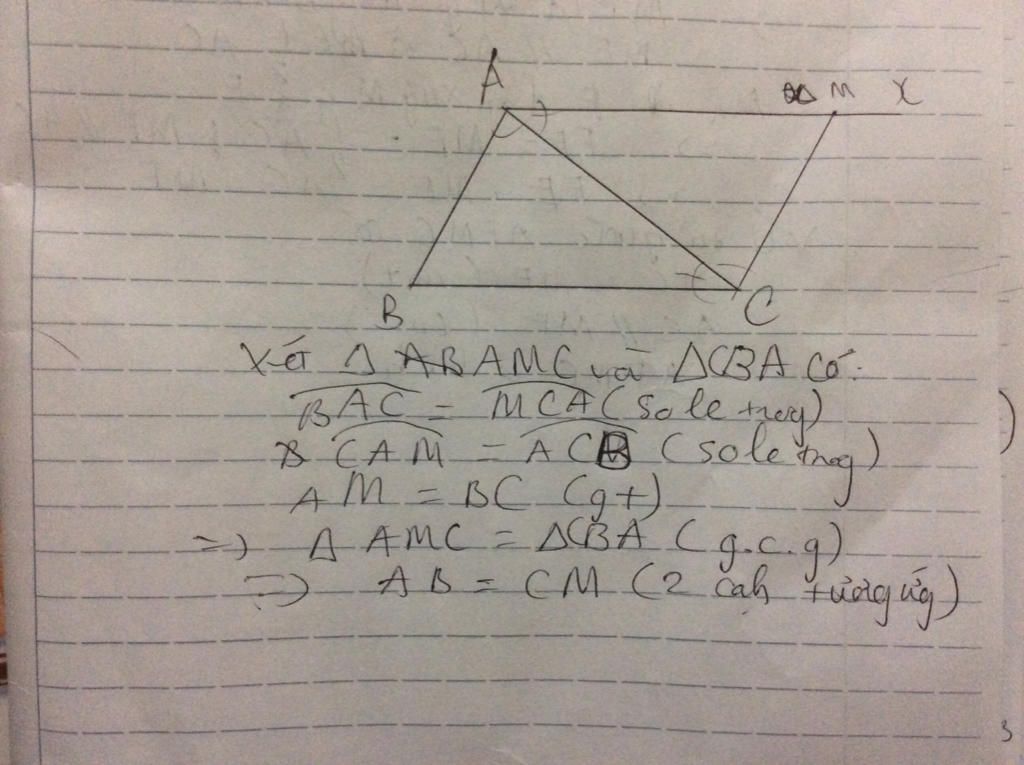 A
M x
B
C
Xét Δ ABAMC và ΔCBA Có:
BAC = MCA (so le trog)
CAM = ACB (so le trog)
AM = BC (gt)
=> Δ AMC = ΔCBA (g.c.g)
=> AB = CM (2 cạh tươg ứg)
3